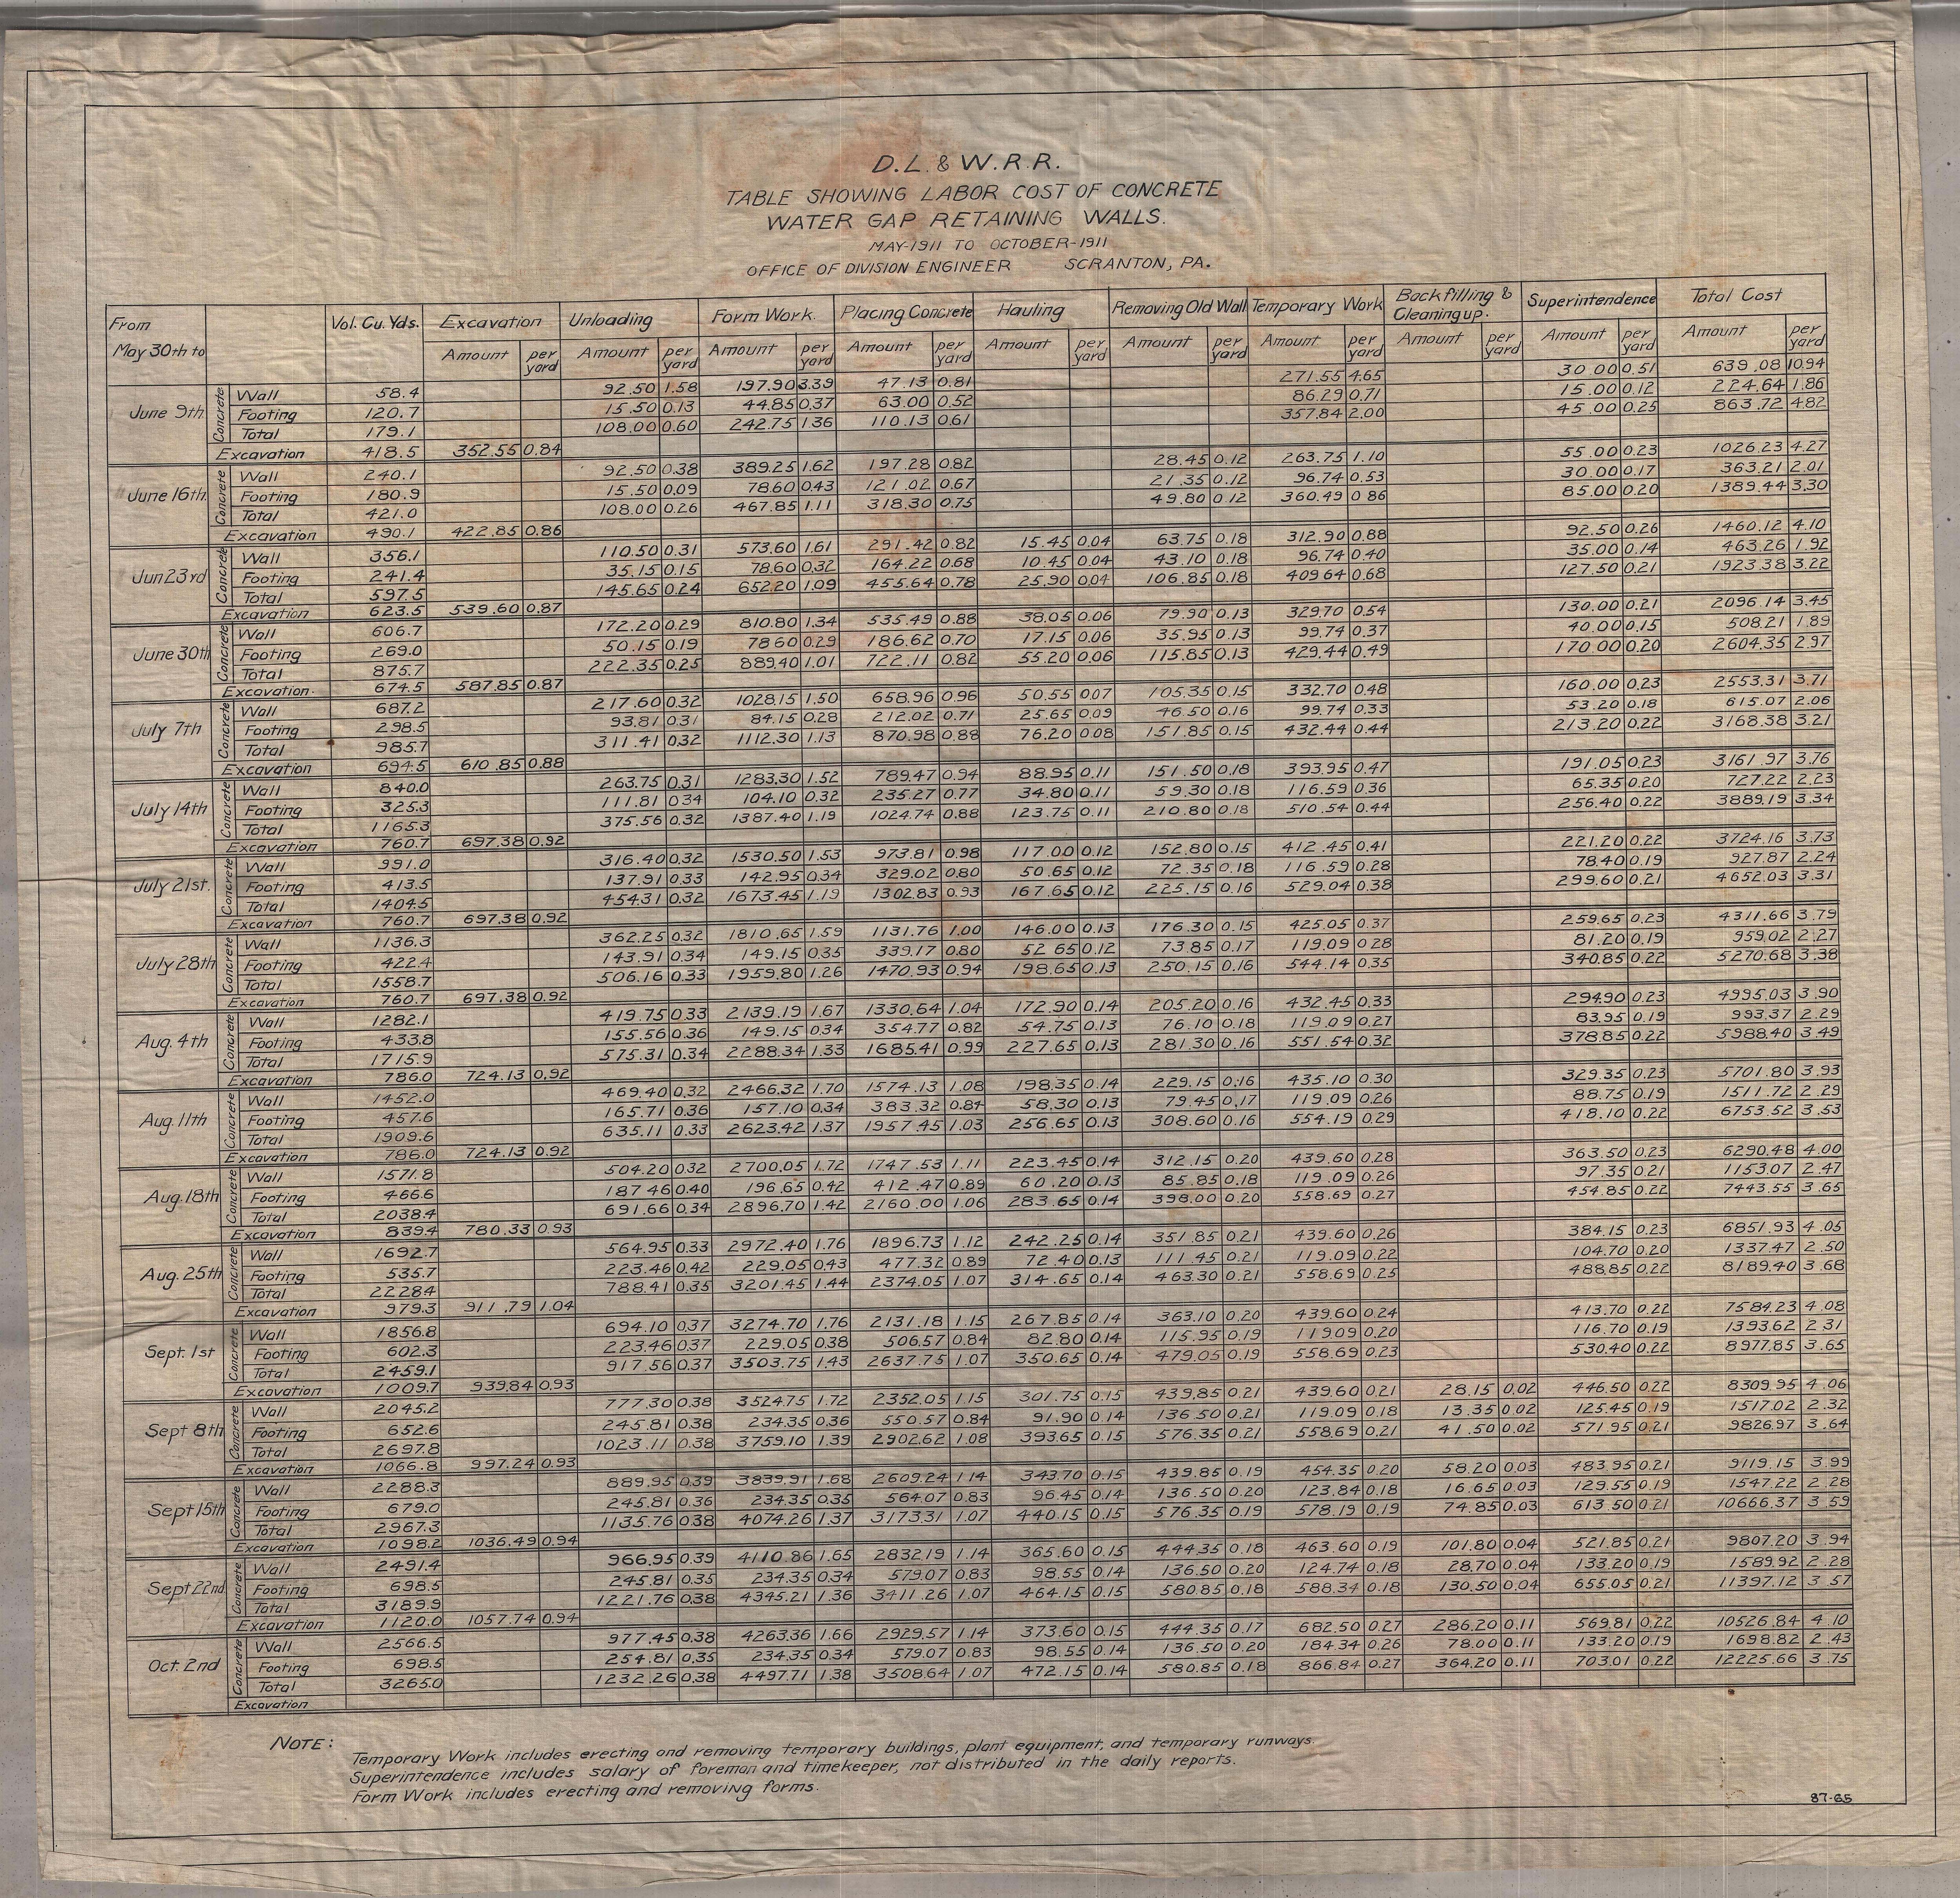 D.L. & W.R.R.
TABLE SHOWING LABOR COST OF CONCRETE
WATER GAP RETAINING WALLS.
MAY-1911 TO OCTOBER-1911
OFFICE OF DIVISION ENGINEER SCRANTON, PA.
From May 30th to Vol. Cu. Yds. Excavation Unloading Form Work. Placing Concrete Hauling Removing Old Wall Temporary Work Backfilling & Cleaning up. Superintendence Total Cost
Amount per yard Amount per yard Amount per yard Amount per yard Amount per yard Amount per yard Amount per yard Amount per yard Amount per yard Amount per yard
June 9th Concrete
Wall 58.4 92.50 1.58 197.90 3.39 47.13 0.81 271.55 4.65 30.00 0.51 639.08 10.94
Footing 120.7 15.50 0.13 44.85 0.37 63.00 0.52 86.29 0.71 15.00 0.12 224.64 1.86
Total 179.1 108.00 0.60 242.75 1.36 110.13 0.61 357.84 2.00 45.00 0.25 863.72 4.82
Excavation 418.5 352.55 0.84
June 16th Concrete
Wall 240.1 92.50 0.38 389.25 1.62 197.28 0.82 28.45 0.12 263.75 1.10 55.00 0.23 1026.23 4.27
Footing 180.9 15.50 0.09 78.60 0.43 121.02 0.67 21.35 0.12 96.74 0.53 30.00 0.17 363.21 2.01
Total 421.0 108.00 0.26 467.85 1.11 318.30 0.75 49.80 0.12 360.49 0.86 85.00 0.20 1389.44 3.30
Excavation 490.1 422.85 0.86
Jun 23rd Concrete
Wall 356.1 110.50 0.31 573.60 1.61 291.42 0.82 15.45 0.04 63.75 0.18 312.90 0.88 92.50 0.26 1460.12 4.10
Footing 241.4 35.15 0.15 78.60 0.32 164.22 0.68 10.45 0.04 43.10 0.18 96.74 0.40 35.00 0.14 463.26 1.92
Total 597.5 145.65 0.24 652.20 1.09 455.64 0.78 25.90 0.04 106.85 0.18 409.64 0.68 127.50 0.21 1923.38 3.22
Excavation 623.5 539.60 0.87
June 30th Concrete
Wall 606.7 172.20 0.29 810.80 1.34 535.49 0.88 38.05 0.06 79.90 0.13 329.70 0.54 130.00 0.21 2096.14 3.45
Footing 269.0 50.15 0.19 78.60 0.29 186.62 0.70 17.15 0.06 35.95 0.13 99.74 0.37 40.00 0.15 508.21 1.89
Total 875.7 222.35 0.25 889.40 1.01 722.11 0.82 55.20 0.06 115.85 0.13 429.44 0.49 170.00 0.20 2604.35 2.97
Excavation. 674.5 587.85 0.87
July 7th Concrete
Wall 687.2 217.60 0.32 1028.15 1.50 658.96 0.96 50.55 0.07 105.35 0.15 332.70 0.48 160.00 0.23 2553.31 3.71
Footing 298.5 93.81 0.31 84.15 0.28 212.02 0.71 25.65 0.09 46.50 0.16 99.74 0.33 53.20 0.18 615.07 2.06
Total 985.7 311.41 0.32 1112.30 1.13 870.98 0.88 76.20 0.08 151.85 0.15 432.44 0.44 213.20 0.22 3168.38 3.21
Excavation 694.5 610.85 0.88
July 14th Concrete
Wall 840.0 263.75 0.31 1283.30 1.52 789.47 0.94 88.95 0.11 151.50 0.18 393.95 0.47 191.05 0.23 3161.97 3.76
Footing 325.3 111.81 0.34 104.10 0.32 235.27 0.77 34.80 0.11 59.30 0.18 116.59 0.36 65.35 0.20 727.22 2.23
Total 1165.3 375.56 0.32 1387.40 1.19 1024.74 0.88 123.75 0.11 210.80 0.18 510.54 0.44 256.40 0.22 3889.19 3.34
Excavation 760.7 697.38 0.92
July 21st. Concrete
Wall 991.0 316.40 0.32 1530.50 1.53 973.81 0.98 117.00 0.12 152.80 0.15 412.45 0.41 221.20 0.22 3724.16 3.73
Footing 413.5 137.91 0.33 142.95 0.34 329.02 0.80 50.65 0.12 72.35 0.18 116.59 0.28 78.40 0.19 927.87 2.24
Total 1404.5 454.31 0.32 1673.45 1.19 1302.83 0.93 167.65 0.12 225.15 0.16 529.04 0.38 299.60 0.21 4652.03 3.31
Excavation 760.7 697.38 0.92
July 28th Concrete
Wall 1136.3 362.25 0.32 1810.65 1.59 1131.76 1.00 146.00 0.13 176.30 0.15 425.05 0.37 259.65 0.23 4311.66 3.79
Footing 422.4 143.91 0.34 149.15 0.35 339.17 0.80 52.65 0.12 73.85 0.17 119.09 0.28 81.20 0.19 959.02 2.27
Total 1558.7 506.16 0.33 1959.80 1.26 1470.93 0.94 198.65 0.13 250.15 0.16 544.14 0.35 340.85 0.22 5270.68 3.38
Excavation 760.7 697.38 0.92
Aug. 4th Concrete
Wall 1282.1 419.75 0.33 2139.19 1.67 1330.64 1.04 172.90 0.14 205.20 0.16 432.45 0.33 294.90 0.23 4995.03 3.90
Footing 433.8 155.56 0.36 149.15 0.34 354.77 0.82 54.75 0.13 76.10 0.18 119.09 0.27 83.95 0.19 993.37 2.29
Total 1715.9 575.31 0.34 2288.34 1.33 1685.41 0.99 227.65 0.13 281.30 0.16 551.54 0.32 378.85 0.22 5988.40 3.49
Excavation 786.0 724.13 0.92
Aug. 11th Concrete
Wall 1452.0 469.40 0.32 2466.32 1.70 1574.13 1.08 198.35 0.14 229.15 0.16 435.10 0.30 329.35 0.23 5701.80 3.93
Footing 457.6 165.71 0.36 157.10 0.34 383.32 0.84 58.30 0.13 79.45 0.17 119.09 0.26 88.75 0.19 1511.72 2.29
Total 1909.6 635.11 0.33 2623.42 1.37 1957.45 1.03 256.65 0.13 308.60 0.16 554.19 0.29 418.10 0.22 6753.52 3.53
Excavation 786.0 724.13 0.92
Aug. 18th Concrete
Wall 1571.8 504.20 0.32 2700.05 1.72 1747.53 1.11 223.45 0.14 312.15 0.20 439.60 0.28 363.50 0.23 6290.48 4.00
Footing 466.6 187.46 0.40 196.65 0.42 412.47 0.89 60.20 0.13 85.85 0.18 119.09 0.26 97.35 0.21 1153.07 2.47
Total 2038.4 691.66 0.34 2896.70 1.42 2160.00 1.06 283.65 0.14 398.00 0.20 558.69 0.27 454.85 0.22 7443.55 3.65
Excavation 839.4 780.33 0.93
Aug. 25th Concrete
Wall 1692.7 564.95 0.33 2972.40 1.76 1896.73 1.12 242.25 0.14 351.85 0.21 439.60 0.26 384.15 0.23 6851.93 4.05
Footing 535.7 223.46 0.42 229.05 0.43 477.32 0.89 72.40 0.13 111.45 0.21 119.09 0.22 104.70 0.20 1337.47 2.50
Total 2228.4 788.41 0.35 3201.45 1.44 2374.05 1.07 314.65 0.14 463.30 0.21 558.69 0.25 488.85 0.22 8189.40 3.68
Excavation 979.3 911.79 1.04
Sept. 1st Concrete
Wall 1856.8 694.10 0.37 3274.70 1.76 2131.18 1.15 267.85 0.14 363.10 0.20 439.60 0.24 413.70 0.22 7584.23 4.08
Footing 602.3 223.46 0.37 229.05 0.38 506.57 0.84 82.80 0.14 115.95 0.19 119.09 0.20 116.70 0.19 1393.62 2.31
Total 2459.1 917.56 0.37 3503.75 1.43 2637.75 1.07 350.65 0.14 479.05 0.19 558.69 0.23 530.40 0.22 8977.85 3.65
Excavation 1009.7 939.84 0.93
Sept 8th Concrete
Wall 2045.2 777.30 0.38 3524.75 1.72 2352.05 1.15 301.75 0.15 439.85 0.21 439.60 0.21 28.15 0.02 446.50 0.22 8309.95 4.06
Footing 652.6 245.81 0.38 234.35 0.36 550.57 0.84 91.90 0.14 136.50 0.21 119.09 0.18 13.35 0.02 125.45 0.19 1517.02 2.32
Total 2697.8 1023.11 0.38 3759.10 1.39 2902.62 1.08 393.65 0.15 576.35 0.21 558.69 0.21 41.50 0.02 571.95 0.21 9826.97 3.64
Excavation 1066.8 997.24 0.93
Sept 15th Concrete
Wall 2288.3 889.95 0.39 3839.91 1.68 2609.24 1.14 343.70 0.15 439.85 0.19 454.35 0.20 58.20 0.03 483.95 0.21 9119.15 3.99
Footing 679.0 245.81 0.36 234.35 0.35 564.07 0.83 96.45 0.14 136.50 0.20 123.84 0.18 16.65 0.03 129.55 0.19 1547.22 2.28
Total 2967.3 1135.76 0.38 4074.26 1.37 3173.31 1.07 440.15 0.15 576.35 0.19 578.19 0.19 74.85 0.03 613.50 0.21 10666.37 3.59
Excavation 1098.2 1036.49 0.94
Sept 22nd Concrete
Wall 2491.4 966.95 0.39 4110.86 1.65 2832.19 1.14 365.60 0.15 444.35 0.18 463.60 0.19 101.80 0.04 521.85 0.21 9807.20 3.94
Footing 698.5 245.81 0.35 234.35 0.34 579.07 0.83 98.55 0.14 136.50 0.20 124.74 0.18 28.70 0.04 133.20 0.19 1589.92 2.28
Total 3189.9 1221.76 0.38 4345.21 1.36 3411.26 1.07 464.15 0.15 580.85 0.18 588.34 0.18 130.50 0.04 655.05 0.21 11397.12 3.57
Excavation 1120.0 1057.74 0.94
Oct. 2nd Concrete
Wall 2566.5 977.45 0.38 4263.36 1.66 2929.57 1.14 373.60 0.15 444.35 0.17 682.50 0.27 286.20 0.11 569.81 0.22 10526.84 4.10
Footing 698.5 254.81 0.35 234.35 0.34 579.07 0.83 98.55 0.14 136.50 0.20 184.34 0.26 78.00 0.11 133.20 0.19 1698.82 2.43
Total 3265.0 1232.26 0.38 4497.71 1.38 3508.64 1.07 472.15 0.14 580.85 0.18 866.84 0.27 364.20 0.11 703.01 0.22 12225.66 3.75
Excavation
NOTE:
Temporary Work includes erecting and removing temporary buildings, plant equipment, and temporary runways.
Superintendence includes salary of foreman and timekeeper, not distributed in the daily reports.
Form Work includes erecting and removing forms.
87-65